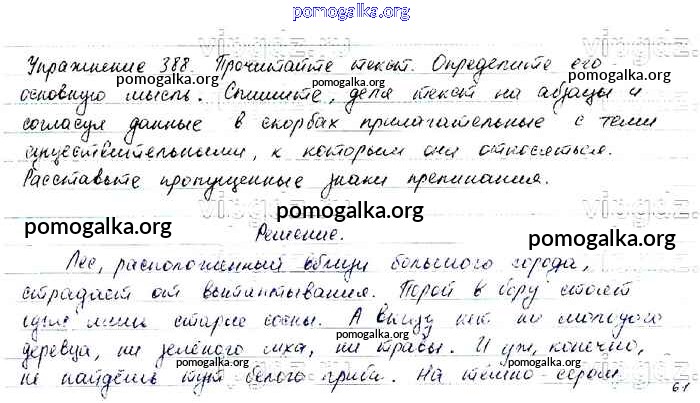 pomogalka.org
Упражнение 388. Прочитайте текст. Определите его
pomogalka.org pomogalka.org pomogalka.org
основную мысль. Спишите, деля текст на абзацы и
согласуя данные в скорбах прилагательные с теми
существительными, к которым они относяться.
Расставьте пропущенные знаки препинания.
pomogalka.org pomogalka.org pomogalka.org
Решение.
Лес, расположенный вблизи большого города,
страдает от вытаптывания. Порой в бору стоят
одни лишь старые сосны. А внизу нет ни молодого
pomogalka.org
деревца, ни зелёного мха, ни травы. И уж, конечно,
pomogalka.org pomogalka.org
не найдёшь тут белого гриба. На тёмно-сером
61